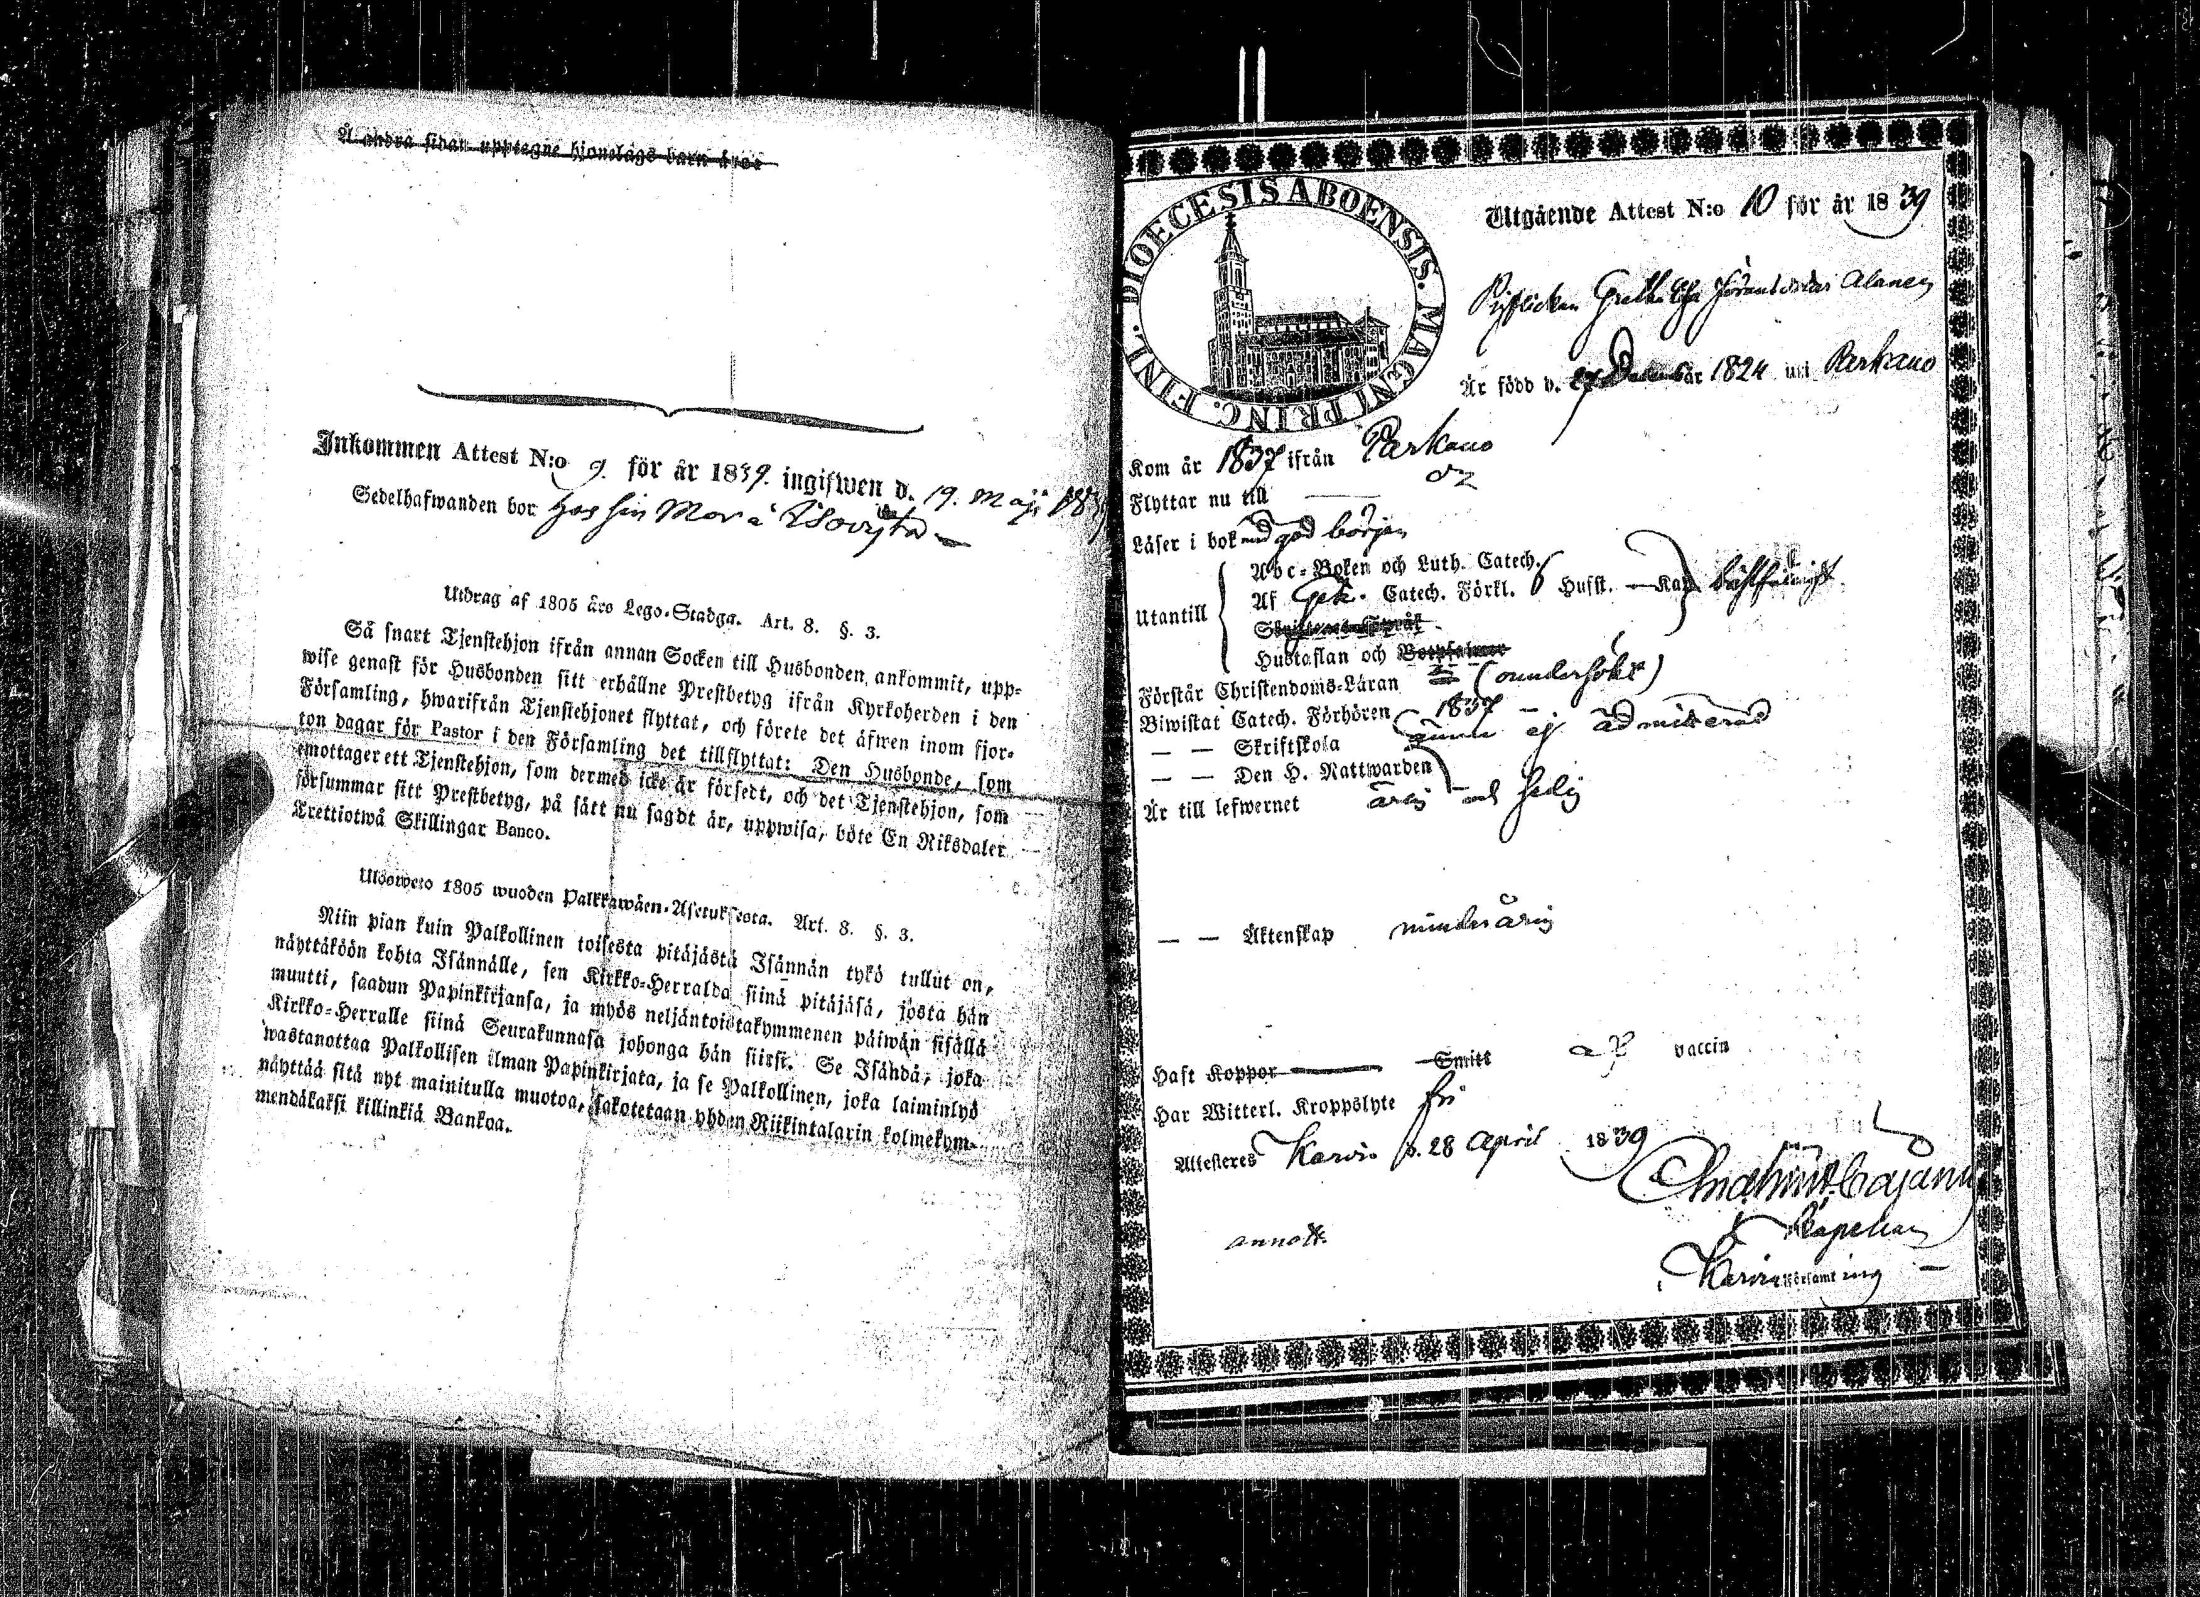 Å andra sidan upptagne hjonelags barn äro:
Inkommen Attest N:o 9. för år 1839. ingifwen d. 19. Maji 1839
Sedelhafwanden bor hos sin Mor å
Utdrag af 1805 års Lego-Stadga. Art. 8. §. 3.
Så snart Tjenstehjon ifrån annan Socken till Husbonden ankommit, upp=
wise genast för Husbonden sitt erhållne Prestbetyg ifrån Kyrkoherden i den
Församling, hwarifrån Tjenstehjonet flyttat, och förete det äfwen inom fjor=
ton dagar för Pastor i den Församling det tillflyttat: Den Husbonde, som
emottager ett Tjenstehjon, som dermed icke är försedt, och det Tjenstehjon, som
försummar sitt Prestbetyg, på sätt nu sagdt är, uppwisa, böte En Riksdaler
Trettiotwå Skillingar Banco.
Ulosweto 1805 wuoden Palkkawäen-Asetuksesta. Art. 8. §. 3.
Niin pian kuin Palkollinen toisesta pitäjästä Isännän tykö tullut on,
näyttäköön kohta Isännälle, sen Kirkko=Herralda siinä pitäjäsä, josta hän
muutti, saadun Papinkirjansa, ja myös neljäntoistakymmenen päiwän sisällä
Kirkko=Herralle siinä Seurakunnasa johonga hän siirsi. Se Isändä, joka
wastanottaa Palkollisen ilman Papinkirjata, ja se Palkollinen, joka laiminlyö
näyttää sitä nyt mainitulla muotoa, sakotetaan yhden Riikintalarin kolmekym=
mendäkaksi killinkiä Bankoa.
DIOECESIS ABOENSIS. MAGNI PRINC. FINL.
Utgående Attest N:o 10 för år 1839
Pigflickan Greta Lisa Alanen
Är född d. 27 December år 1824 uti Parkano
Kom år 1837 ifrån Parkano
Flyttar nu till — dz
Läser i bok med god början
Abc=Boken och Luth. Catech.
Utantill Af Catech. Förkl. Hufst. — Kap.
Skriftenes Språk
Hustaflan och Botpsalmer
Förstår Christendoms=Läran (oundersökt)
Biwistat Catech. Förhören 1837
— — Skriftskola ännu ej admitterad
— — Den H. Nattwarden
Är till lefwernet ärlig och sedig
— — Äktenskap minderårig
Haft Koppor — Smitt af vaccin
Har Witterl. Kroppslyte fri
Attesteras Karvia d. 28 April 1839
Cajanus
Kapellan
annott. Karvia Församling